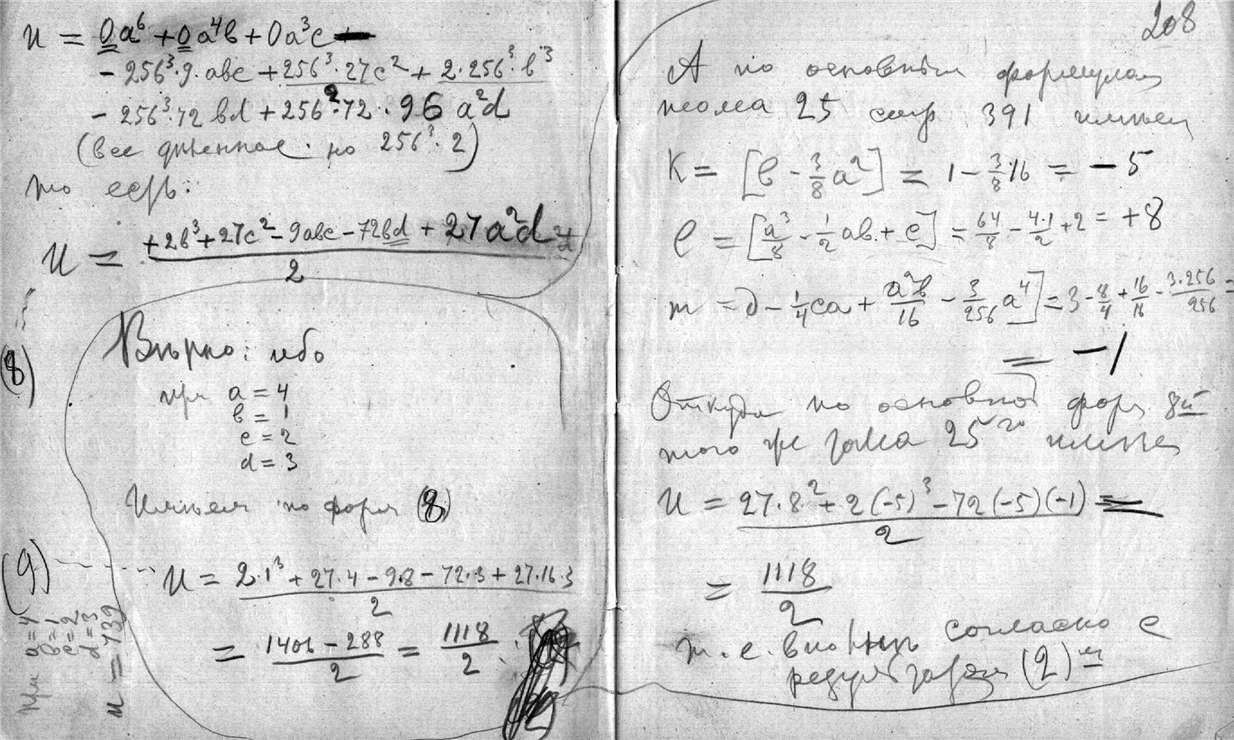 И = 0a⁶ + 0a⁴в + 0a³с
- 256³·9·aвс + 256³·27с² + 2·256³·в³
- 256³·72 вd + 256²·72·96 a²d
(все деленное по 256³·2)
то есть:
И = (+2в³ + 27с² - 9aвс - 72вd + 27a²d) / 2
(8)
Вѣрно: ибо
при a = 4
в = 1
с = 2
d = 3
Имѣем по форм (8)
(9) И = (2·1³ + 27·4 - 9·8 - 72·3 + 27·16·3) / 2
= (1406 - 288) / 2 = 1118 / 2
При a=4
в=1
с=2
d=3
И = 739
208
А по основным формулам
тома 25 стр 391 имѣем
K = [в - 3/8 a²] = 1 - 3/8·16 = -5
l = [a³/8 - 1/2 aв + с] = 64/8 - 4·1/2 + 2 = +8
m = d - 1/4 сa + a²в/16 - 3/256 a⁴] = 3 - 8/4 + 16/16 - 3·256/256 =
= -1
Откуда по основной форм 8й
того же тома 25го имѣем
И = (27·8² + 2(-5)³ - 72(-5)(-1)) / 2 =
= 1118 / 2
т. е. вполнѣ согласно с
результатом (9)м